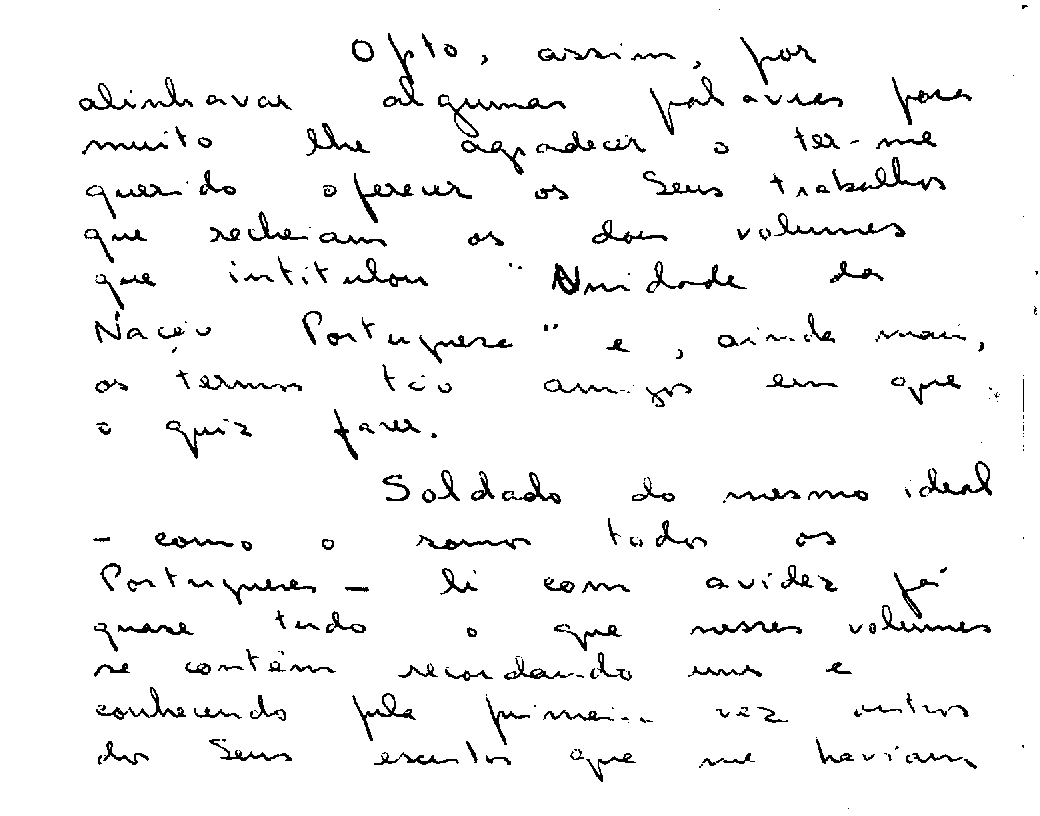 Opto, assim, por
alinhavar algumas palavras para
muito lhe agradecer o ter-me
querido oferecer os Seus trabalhos
que recheiam os dois volumes
que intitulou "Unidade da
Nação Portuguesa" e, ainda mais,
os termos tão amigos em que
o quiz fazer.
Soldado do mesmo ideal
- como o somos todos os
Portugueses - li com avidez já
quase tudo o que nesses volumes
se contém recordando uns e
conhecendo pela primeira vez outros
dos Seus escritos que me haviam